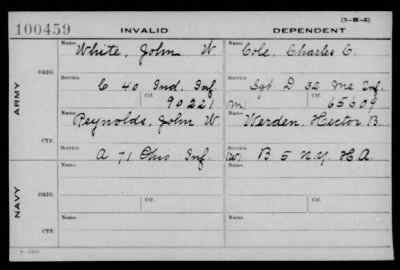 (3—H—5)
100459 INVALID DEPENDENT
Name White, John W. Name Cole, Charles C.
ARMY
ORIG.
Service C 40 Ind. Inf. Service Sgt D 32 Me Inf.
Ctf. 90221 Ctf. M. 65609
CTF.
Name Reynolds, John W. Name Werden, Hector B.
Service A 71 Ohio Inf. Service (W) B 5 N.Y. H.A.
NAVY
ORIG.
Name Name
Service Ctf. Service Ctf.
CTF.
Name Name